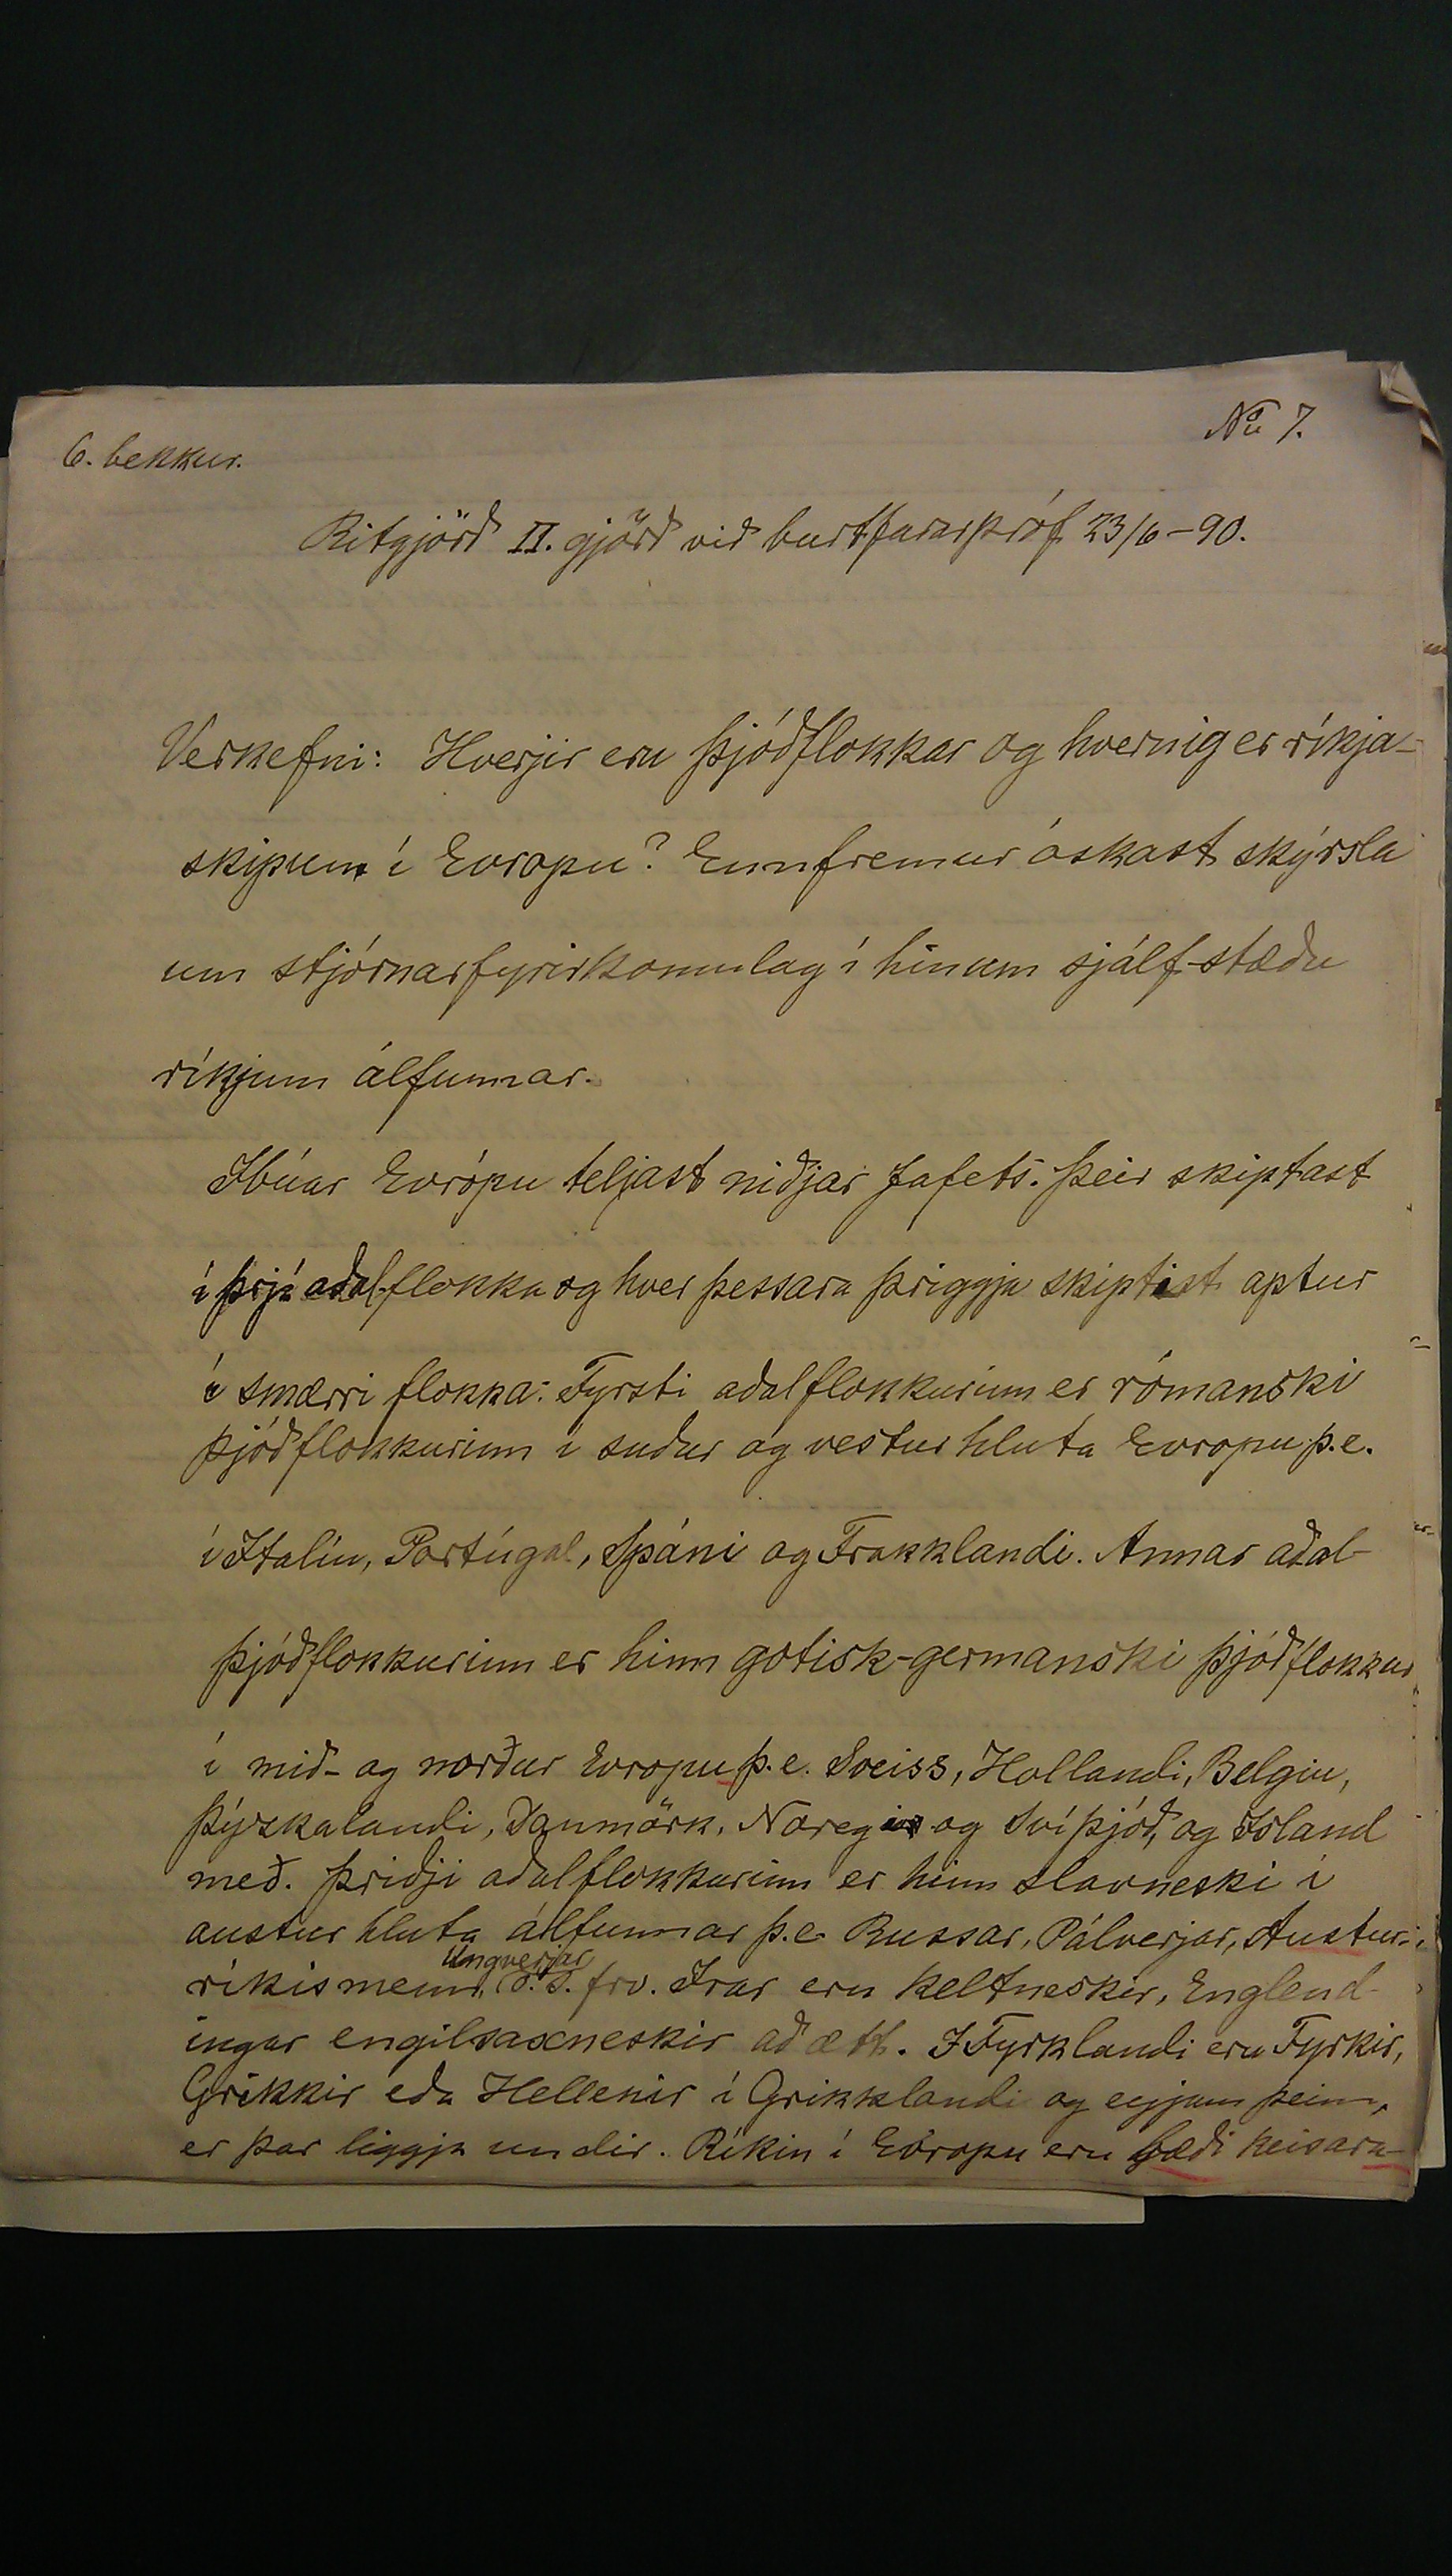 6. bekkur.
No 7.
Ritgjörð II. gjörð við burtfararpróf 23/6-90.
Verkefni: Hverjir eru þjóðflokkar og hvernig er ríkja-
skipun í Evropu? Ennfremur óskast skýrsla
um stjórnarfyrirkomulag í hinum sjálfstæðu
ríkjum álfunnar.
Íbúar Evrópu teljast niðjar Jafets. Þeir skiptast
í þrjá aðal-flokka og hver þessara þriggja skiptist aptur
í smærri flokka: Fyrsti aðalflokkurinn er rómanski
þjóðflokkurinn í suður og vestur hluta Evropu þ.e.
í Italíu, Portúgal, Spáni og Frakklandi. Annar aðal-
þjóðflokkurinn er hinn gotisk-germanski þjóðflokkur
í mið- og norður Evropu þ.e. Sveiss, Hollandi, Belgiu,
Þýzkalandi, Danmörk, Noregi og Svíþjóð, og Island
með. Þriðji aðalflokkurinn er hinn slavneski í
austur hluta álfunnar þ.e. Russar, Pálverjar, Austur-
Ungverjar
ríkismenn, o.s.frv. Írar eru keltneskir, Englend-
ingar engilsaxneskir að ætt. Í Tyrklandi eru Tyrkir,
Grikkir eða Hellenir í Grikklandi og eyjum þeim,
er þar liggja undir. Ríkin í Evropu eru bæði keisara-